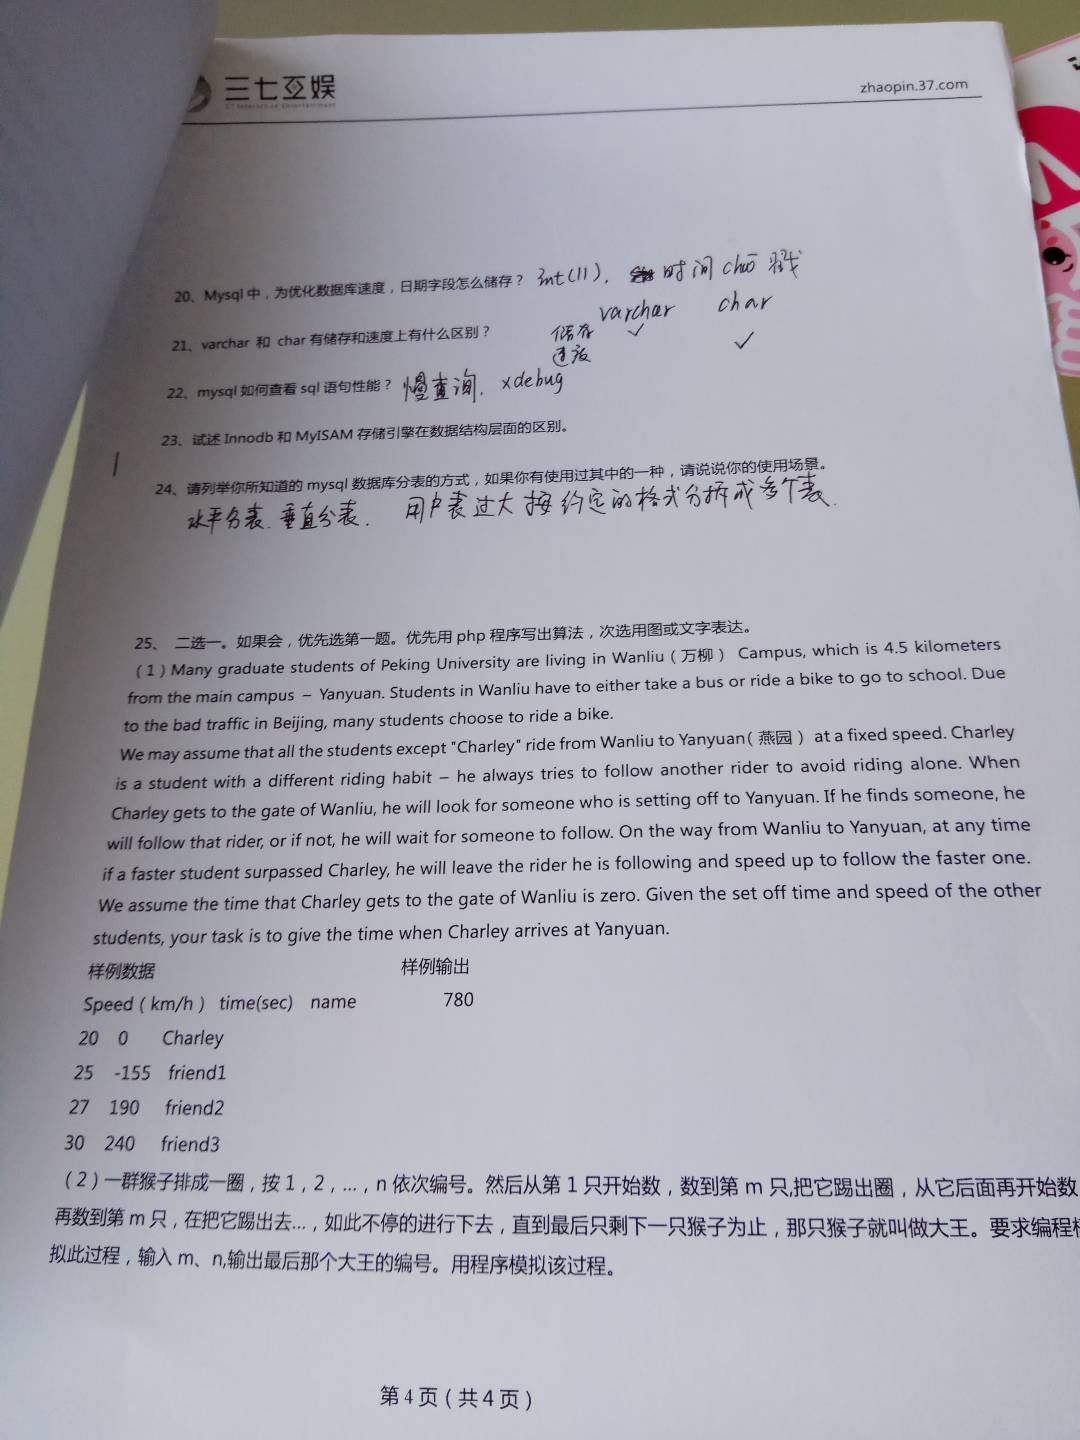 三七互娱
37 Interactive Entertainment
zhaopin.37.com
20、Mysql 中，为优化数据库速度，日期字段怎么储存？ int(11), 时间 chuō 戳
varchar char
21、varchar 和 char 有储存和速度上有什么区别？ 储存 ✓
速度 ✓
22、mysql 如何查看 sql 语句性能？ 慢查询. xdebug
23、试述 Innodb 和 MyISAM 存储引擎在数据结构层面的区别。
24、请列举你所知道的 mysql 数据库分表的方式，如果你有使用过其中的一种，请说说你的使用场景。
水平分表. 垂直分表. 用户表过大 按约定的格式分拆成多个表.
25、 二选一。如果会，优先选第一题。优先用 php 程序写出算法，次选用图或文字表达。
（1）Many graduate students of Peking University are living in Wanliu（万柳） Campus, which is 4.5 kilometers
from the main campus – Yanyuan. Students in Wanliu have to either take a bus or ride a bike to go to school. Due
to the bad traffic in Beijing, many students choose to ride a bike.
We may assume that all the students except "Charley" ride from Wanliu to Yanyuan(燕园） at a fixed speed. Charley
is a student with a different riding habit – he always tries to follow another rider to avoid riding alone. When
Charley gets to the gate of Wanliu, he will look for someone who is setting off to Yanyuan. If he finds someone, he
will follow that rider, or if not, he will wait for someone to follow. On the way from Wanliu to Yanyuan, at any time
if a faster student surpassed Charley, he will leave the rider he is following and speed up to follow the faster one.
We assume the time that Charley gets to the gate of Wanliu is zero. Given the set off time and speed of the other
students, your task is to give the time when Charley arrives at Yanyuan.
样例数据 样例输出
Speed（km/h） time(sec) name 780
20 0 Charley
25 -155 friend1
27 190 friend2
30 240 friend3
（2）一群猴子排成一圈，按 1，2，...，n 依次编号。然后从第 1 只开始数，数到第 m 只,把它踢出圈，从它后面再开始数
再数到第 m 只，在把它踢出去...，如此不停的进行下去，直到最后只剩下一只猴子为止，那只猴子就叫做大王。要求编程
拟此过程，输入 m、n,输出最后那个大王的编号。用程序模拟该过程。
第 4 页（共 4 页）